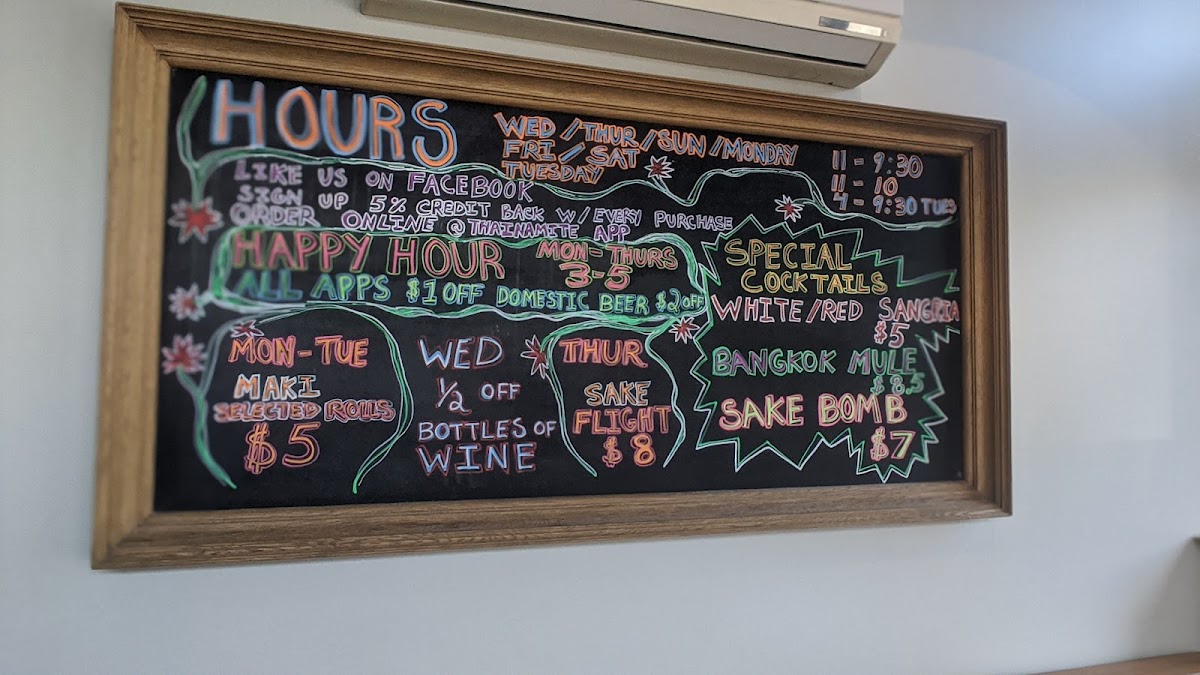 HOURS
WED / THUR / SUN / MONDAY 11 - 9:30
FRI / SAT 11 - 10
TUESDAY 4 - 9:30 TUES
LIKE US ON FACEBOOK
SIGN UP 5% CREDIT BACK W/ EVERY PURCHASE
ORDER ONLINE @ THAINAMITE APP
HAPPY HOUR MON - THURS
3-5
ALL APPS $1 OFF DOMESTIC BEER $2 OFF
MON - TUE
MAKI
SELECTED ROLLS
$5
WED
1/2 OFF
BOTTLES OF
WINE
THUR
SAKE
FLIGHT
$8
SPECIAL
COCKTAILS
WHITE/RED SANGRIA
$5
BANGKOK MULE
$8.5
SAKE BOMB
$7